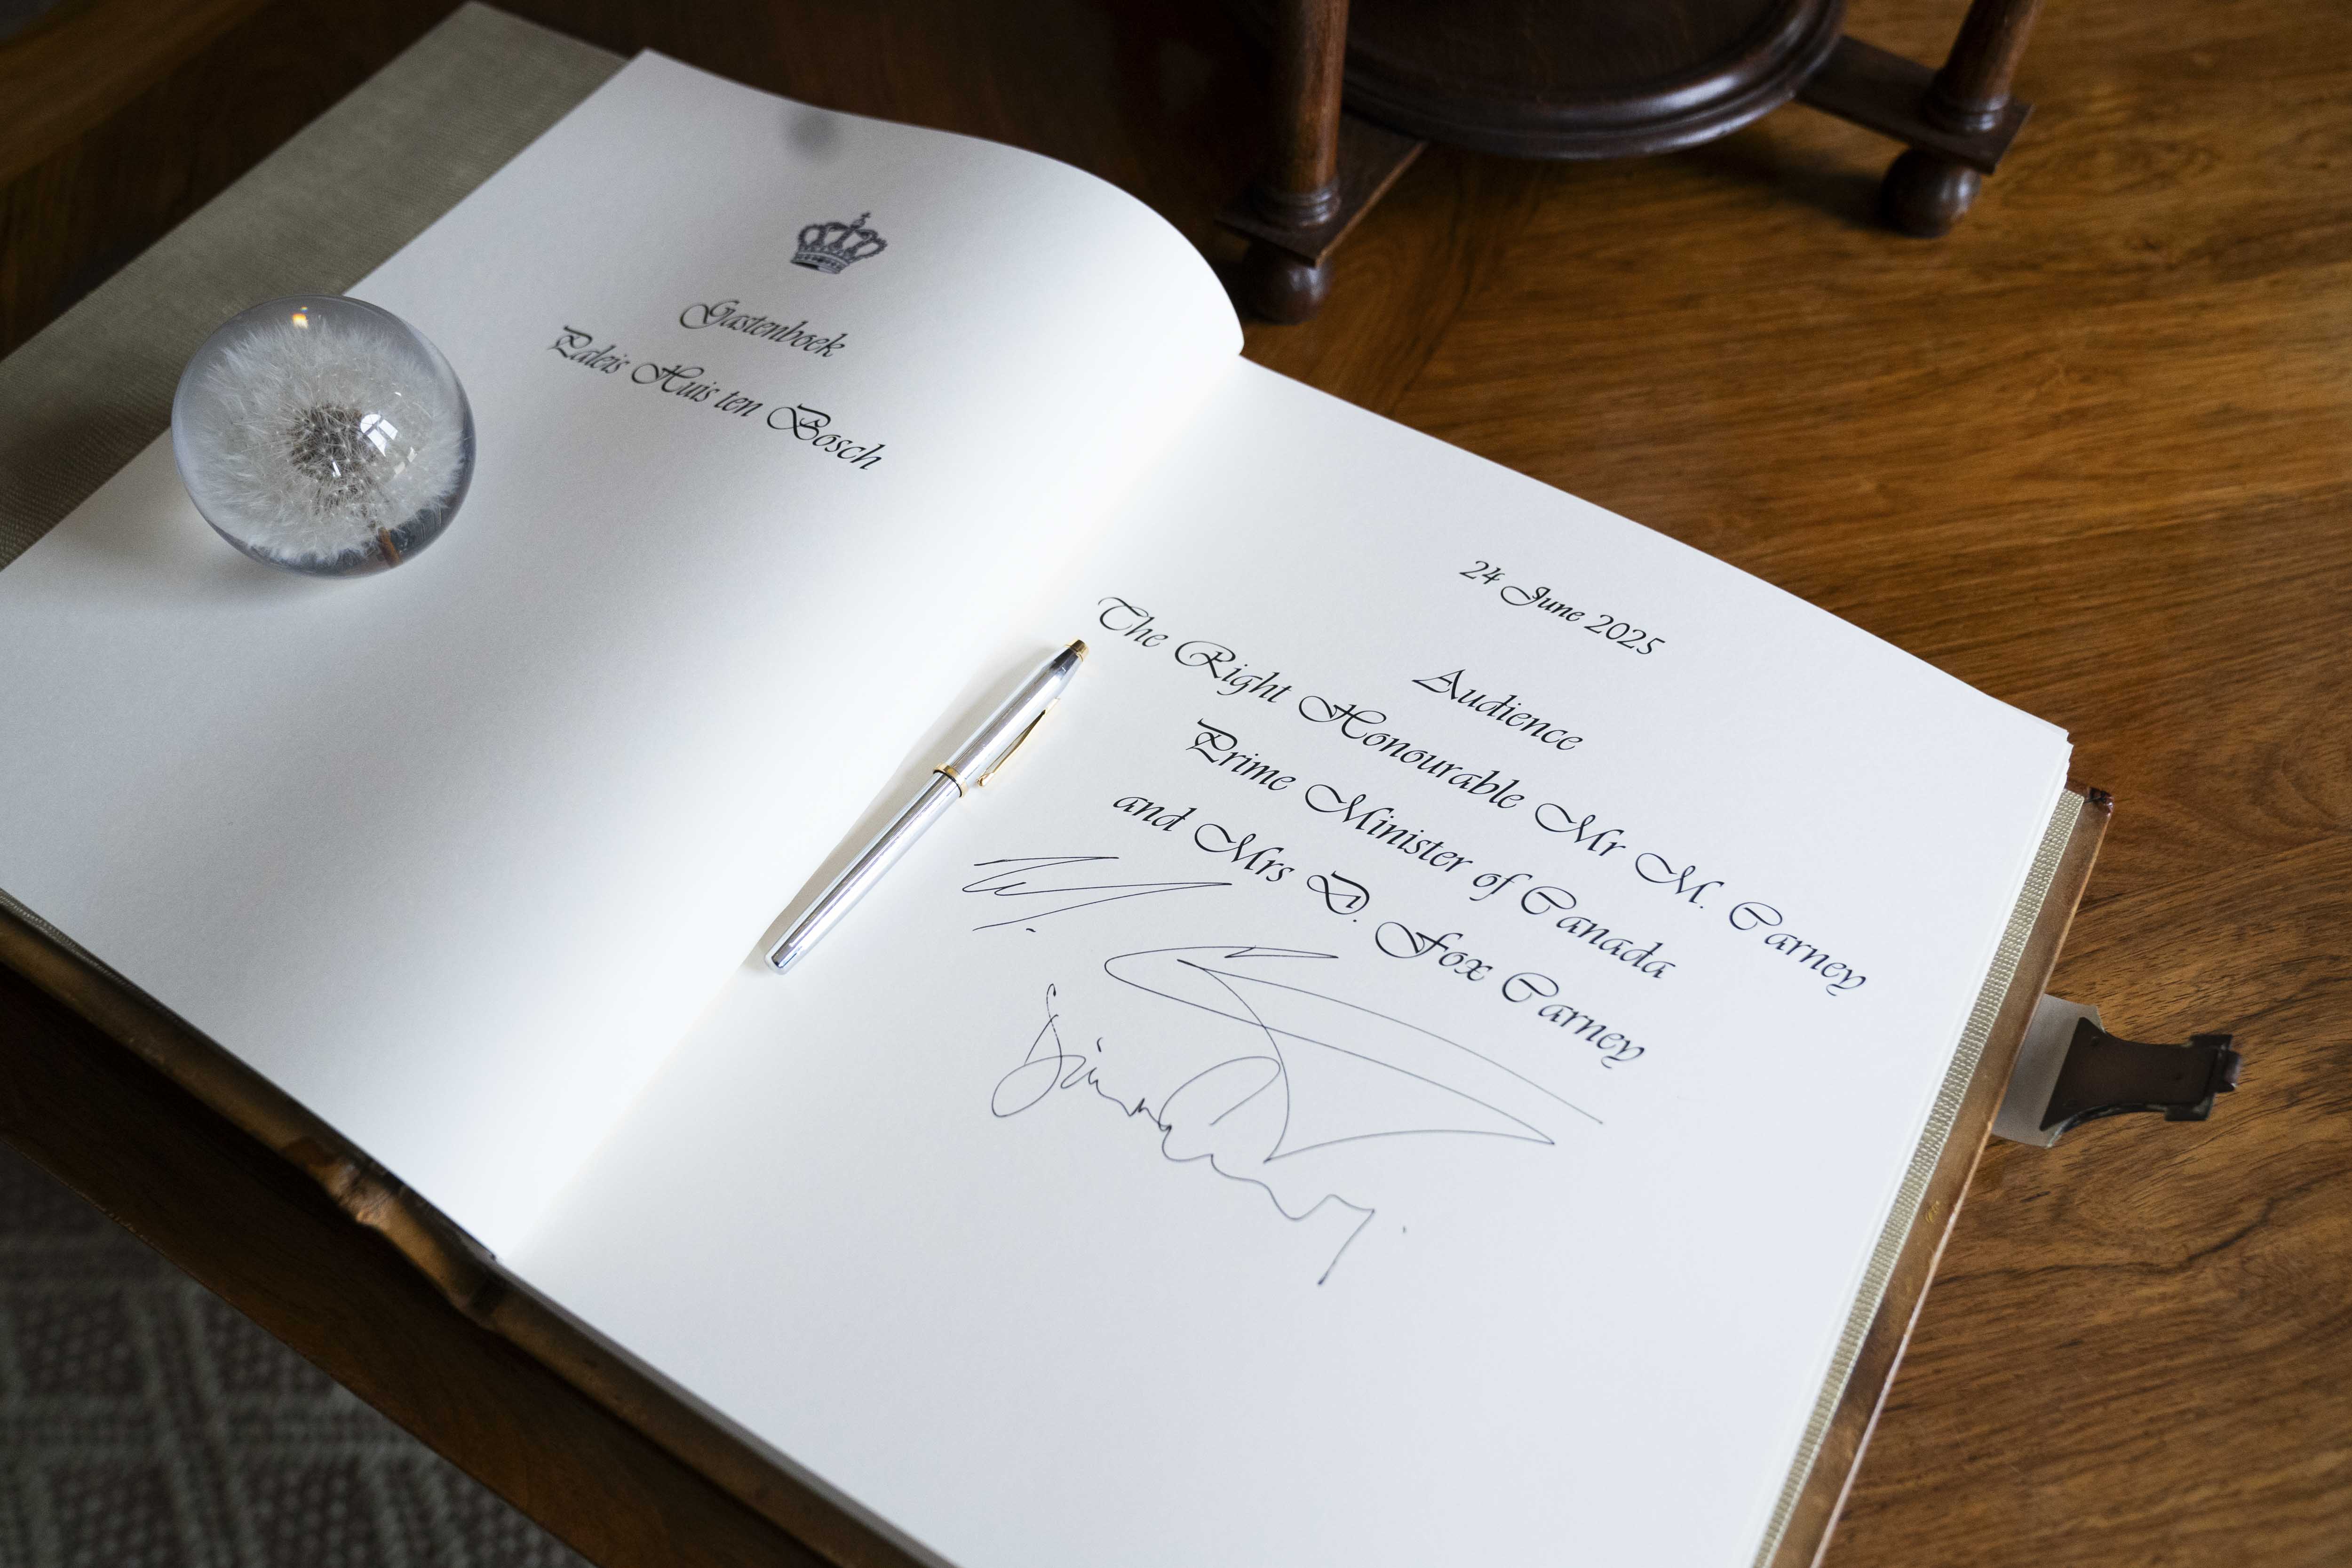 Gastenboek
Paleis Huis ten Bosch
24 June 2025
Audience
The Right Honourable Mr M. Carney
Prime Minister of Canada
and Mrs D. Fox Carney